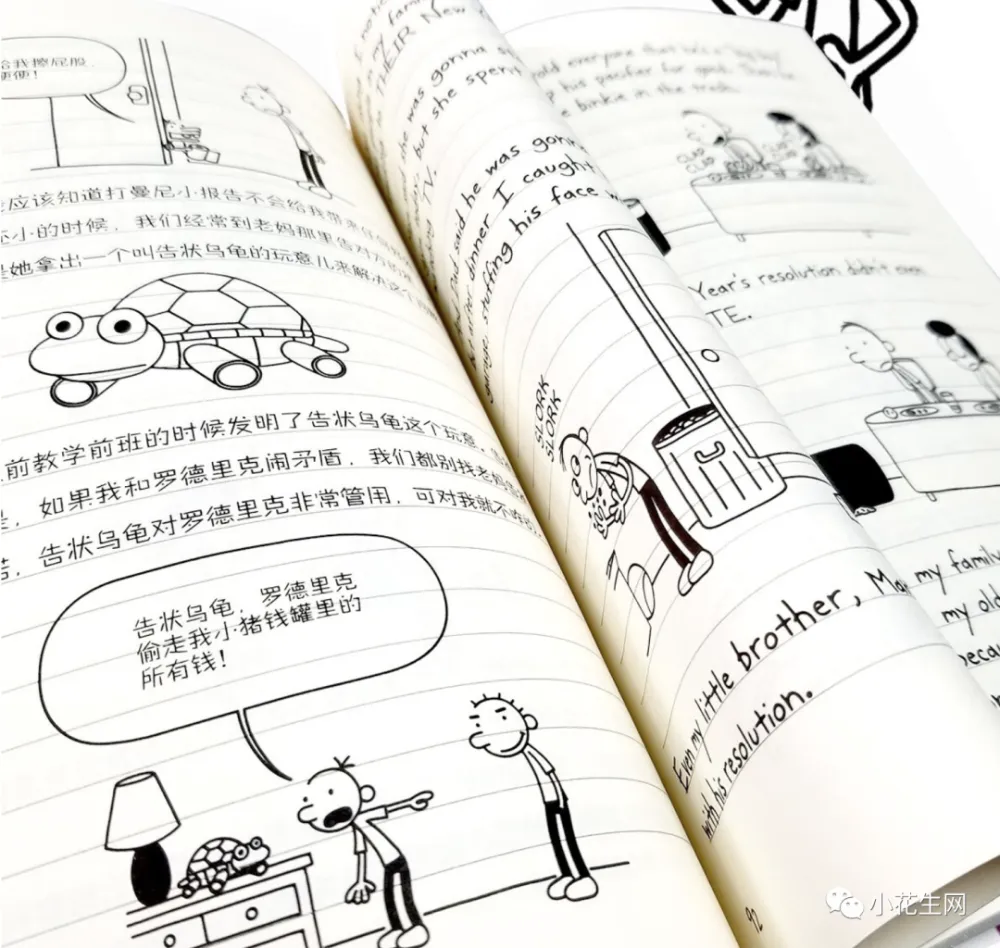 给我擦屁股，
便便！
应该知道打曼尼小报告不会给我带来任何
小的时候，我们经常到老妈那里告对方的
是她拿出一个叫告状乌龟的玩意儿来解决这个
前教学前班的时候发明了告状乌龟这个玩意。
，如果我和罗德里克闹矛盾，我们都别找老妈
，告状乌龟对罗德里克非常管用，可对我就不
告状乌龟，罗德里克
偷走我小猪钱罐里的
所有钱！
my family
THEIR New
she was gonna
but she spent
TV.
Dad said he was gonna
dinner I caught
garage, stuffing his face
SLORK
SLORK
Even my little brother,
with his resolution.
92
told everyone that he's a
his pacifier for good. Then
binkie in the trash.
Year's resolution didn't even
TE.
my family
my old
小花生网